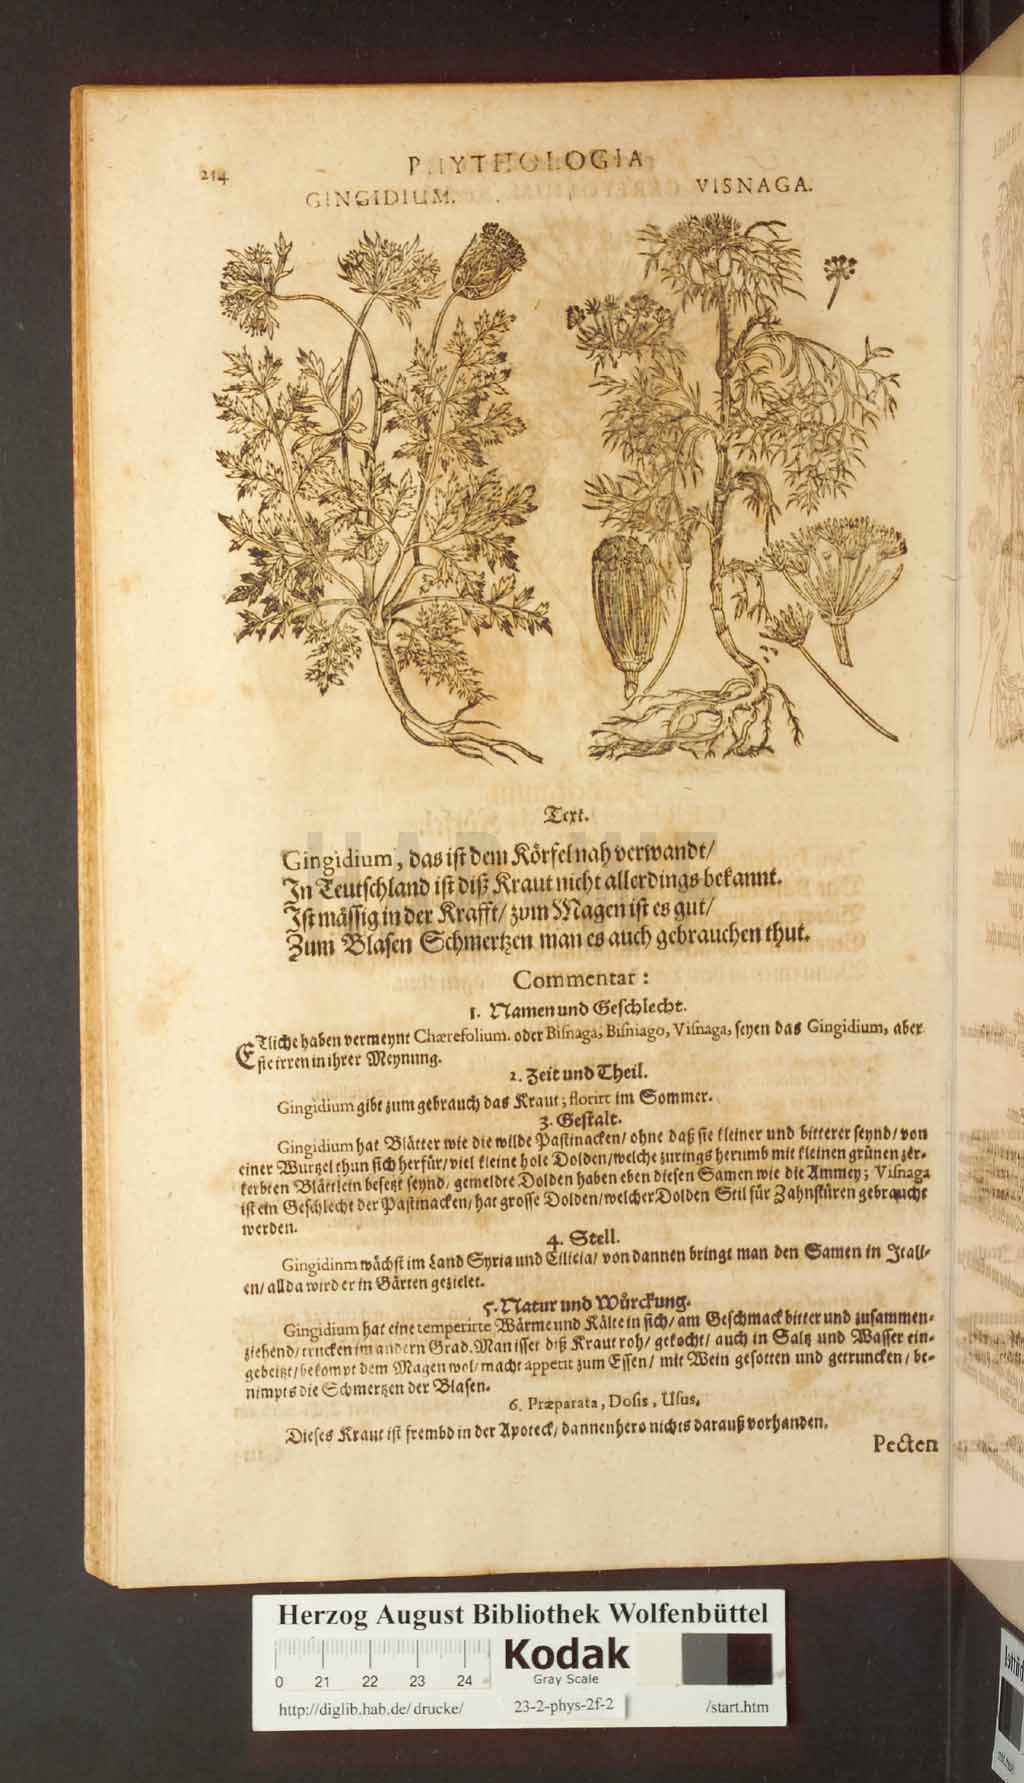 214
PHYTHOLOGIA
GINGIDIUM.
VISNAGA.
Text.
Gingidium, das ist dem Körfel nah verwandt/
In Teutschland ist diß Kraut nicht allerdings bekannt.
Ist mässig in der Krafft/ zum Magen ist es gut/
Zum Blasen Schmertzen man es auch gebrauchen thut.
Commentar:
1. Namen und Geschlecht.
ETliche haben vermeynt Chærefolium. oder Bisnaga, Bisniago, Visnaga, seyen das Gingidium, aber
sie irren in ihrer Meynung.
2. Zeit und Theil.
Gingidium gibt zum gebrauch das Kraut; florirt im Sommer.
3. Gestalt.
Gingidium hat Blätter wie die wilde Pastinacken/ ohne daß sie kleiner und bitterer seynd/ von
einer Wurtzel thun sich herfür/ viel kleine hole Dolden/ welche zurings herumb mit kleinen grünen zer-
kerbten Blättlein besetzt seynd/ gemeldte Dolden haben eben diesen Samen wie die Ammey; Visnaga
ist ein Geschlecht der Pastinacken/ hat grosse Dolden/ welcher Dolden Stil für Zahnstüren gebraucht
werden.
4. Stell.
Gingidinm wächst im Land Syria und Cilicia/ von dannen bringt man den Samen in Itali-
en/ allda wird er in Gärten gezielet.
5. Natur und Würckung.
Gingidium hat eine temperirte Wärme und Kälte in sich/ am Geschmack bitter und zusammen-
ziehend/ trucken im andern Grad. Man isset diß Kraut roh/ gekocht/ auch in Saltz und Wasser ein-
gebeitzt/ bekompt dem Magen wol/ macht appetit zum Essen/ mit Wein gesotten und getruncken/ be-
nimpts die Schmertzen der Blasen.
6. Præparata, Dosis, Usus.
Dieses Kraut ist frembd in der Apoteck/ dannenhero nichts darauß vorhanden.
Pecten
Herzog August Bibliothek Wolfenbüttel
0 21 22 23 24
Kodak
Gray Scale
http://diglib.hab.de/drucke/ 23-2-phys-2f-2 /start.htm